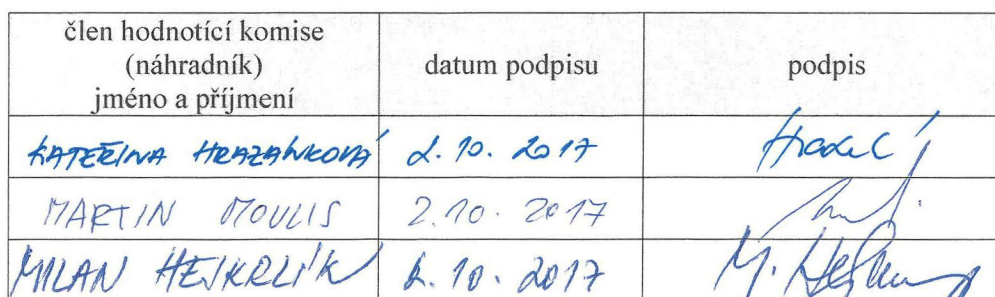 člen hodnotící komise
(náhradník)
jméno a příjmení
datum podpisu
podpis
KATEŘINA HRAZÁNKOVÁ 2. 10. 2017
MARTIN MOULIS 2.10. 2017
MILAN HEJKRLÍK 2. 10. 2017 M.